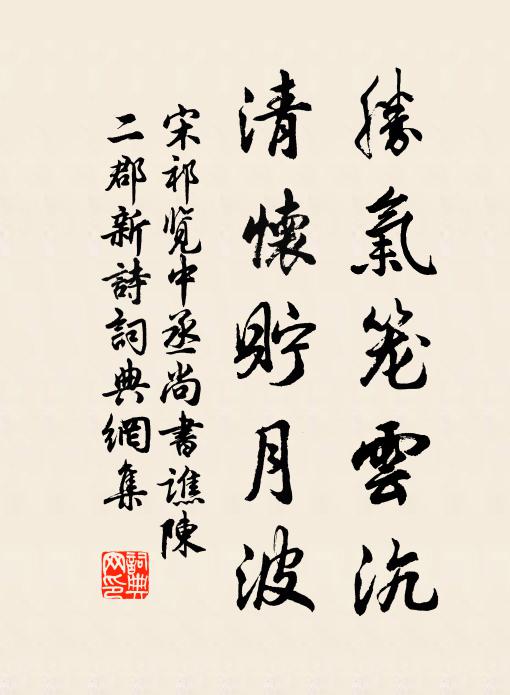 勝氣笼雲沆
清懷貯月波
宋祁覽中丞尚書譙陳
二郡新詩詞典網集
詞典
网印